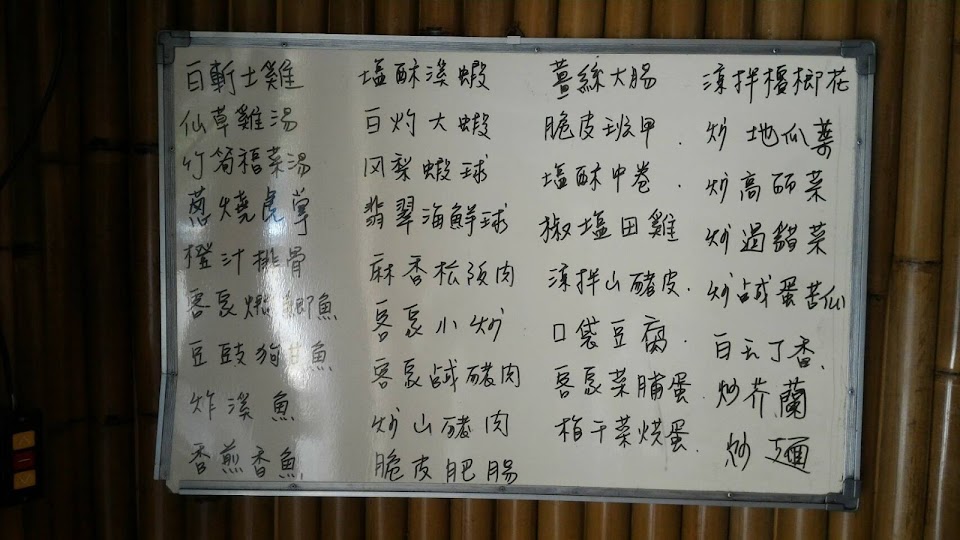 白斬土雞
仙草雞湯
竹筍福菜湯
蔥燒虎掌
橙汁排骨
客家鯽魚
豆豉狗甘魚
炸溪魚
香煎香魚
塩酥溪蝦
白灼大蝦
凤梨蝦球
翡翠海鮮球
麻香松阪肉
客家小炒
客家鹹豬肉
炒山豬肉
脆皮肥腸
薑絲大腸
脆皮班甲
塩酥中卷
椒塩田雞
涼拌山豬皮
口袋豆腐
客家菜脯蛋
梅干菜烘蛋
涼拌檳榔花
炒地瓜葉
炒高丽菜
炒過貓菜
炒鹹蛋苦仙
白玉丁香
炒芥蘭
炒麵